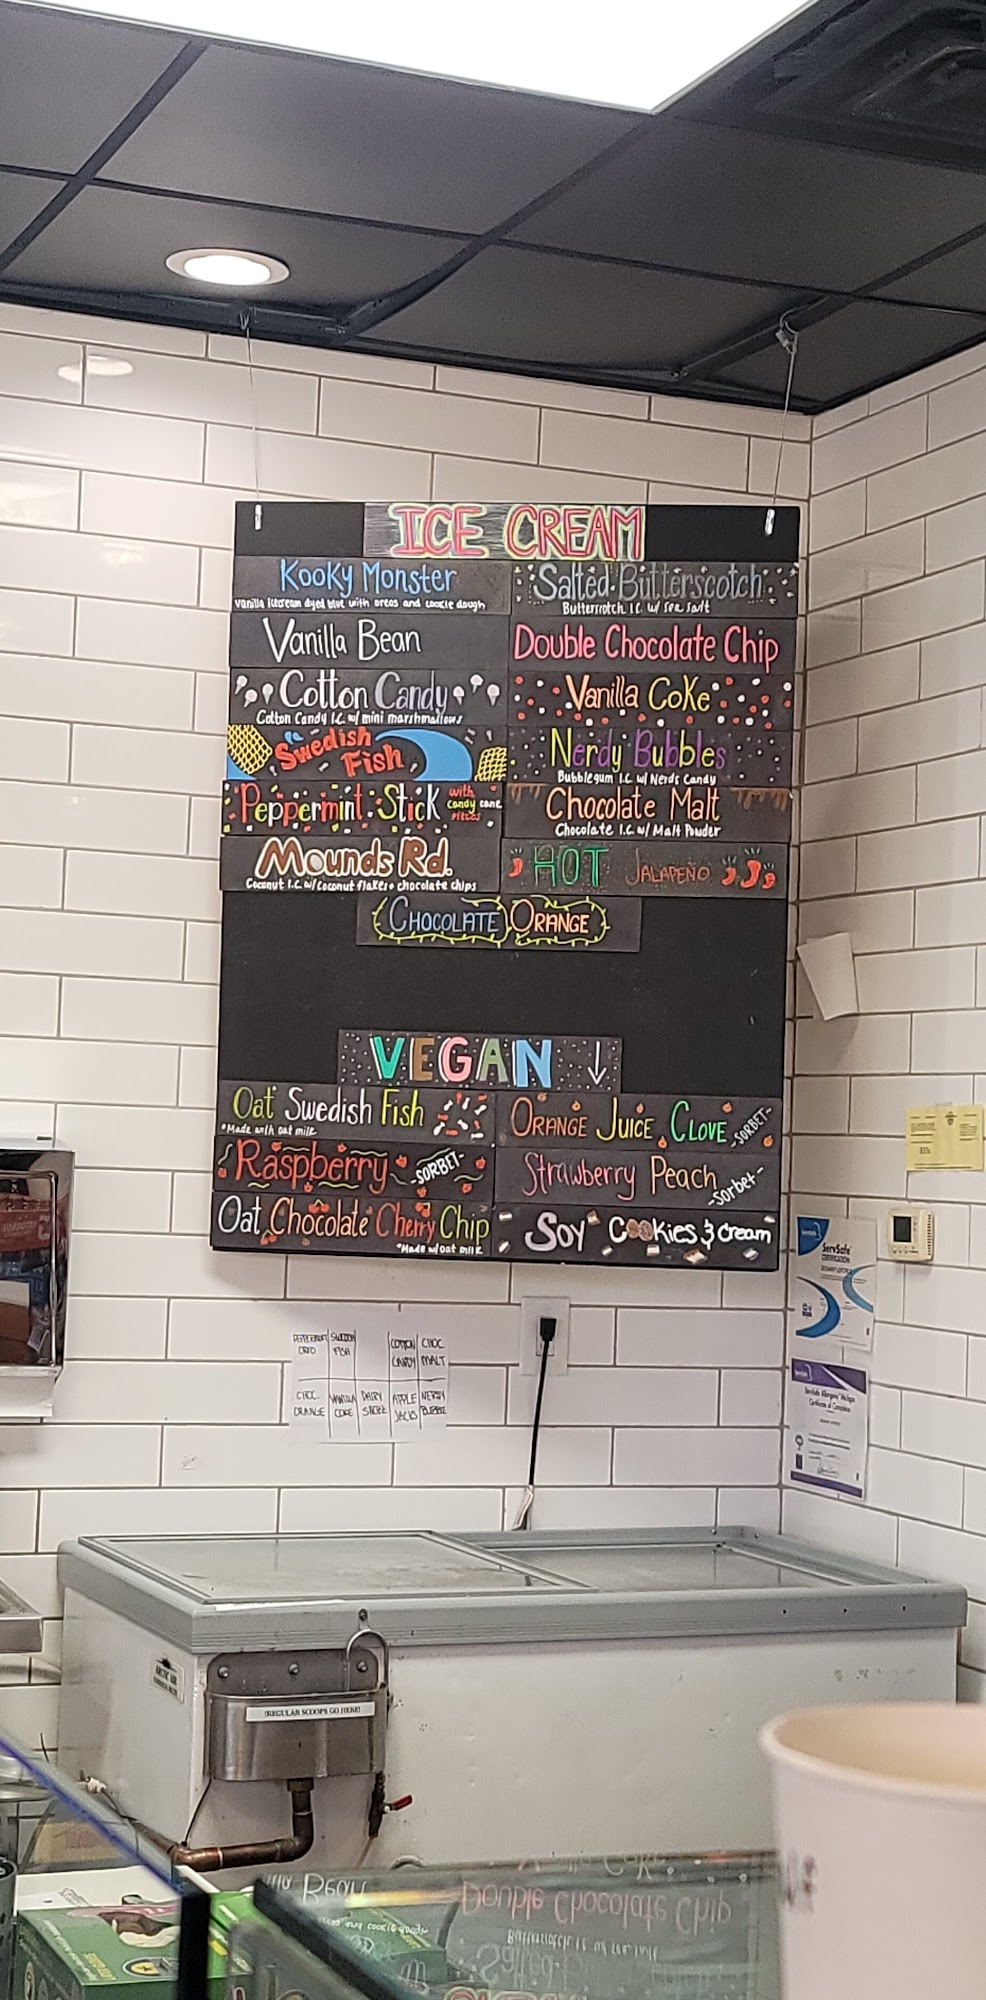 ICE CREAM
Kooky Monster
Vanilla Icecream dyed blue with oreos and cookie dough
Salted Butterscotch
Butterscotch I.C. w/ sea salt
Vanilla Bean
Double Chocolate Chip
Cotton Candy
Cotton Candy I.C. w/ mini marshmallows
Vanilla Coke
Swedish
Fish
Nerdy Bubbles
Bubblegum I.C. w/ Nerds Candy
Peppermint Stick
with
candy cane
pieces
Chocolate Malt
Chocolate I.C. w/ Malt Powder
Mounds Rd.
Coconut I.C. w/ coconut flakes + chocolate chips
HOT JALAPEÑO
CHOCOLATE ORANGE
VEGAN ↓
Oat Swedish Fish
*Made with oat milk
ORANGE JUICE CLOVE -SORBET-
Raspberry -SORBET-
Strawberry Peach -Sorbet-
Oat Chocolate Cherry Chip
*Made w/ oat milk
Soy Cookies & Cream
SWEDISH
FISH
COTTON
CANDY
CHOC
MALT
CHOC.
ORANGE
VANILLA
COKE
APPLE
JACKS
NERDY
BUBBLE
ServSafe
CERTIFICATION
ServSafe
ARCTIC AIR
!REGULAR SCOOPS GO HERE!
Bean
Double Chocolate Chip
and cookie dough
Butterscotch I.C. w/ sea salt
Salted